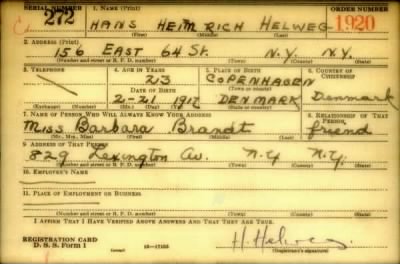 SERIAL NUMBER 1. NAME (Print) ORDER NUMBER
272 HANS HEINRICH HELWEG 1920
(First) (Middle) (Last)
2. ADDRESS (Print)
156 EAST 64 St. N.Y. N.Y.
(Number and street or R. F. D. number) (Town) (County) (State)
3. TELEPHONE 4. AGE IN YEARS 5. PLACE OF BIRTH 6. COUNTRY OF CITIZENSHIP
23 COPENHAGEN
DATE OF BIRTH (Town or county)
2-21 1917 DENMARK Denmark
(Exchange) (Number) (Mo.) (Day) (Yr.) (State or country)
7. NAME OF PERSON WHO WILL ALWAYS KNOW YOUR ADDRESS 8. RELATIONSHIP OF THAT PERSON
Miss Barbara Brandt friend
(Mr., Mrs., Miss) (First) (Middle) (Last)
9. ADDRESS OF THAT PERSON
829 Lexington Av. N.Y. N.Y.
(Number and street or R. F. D. number) (Town) (County) (State)
10. EMPLOYER'S NAME
11. PLACE OF EMPLOYMENT OR BUSINESS
(Number and street or R. F. D. number) (Town) (County) (State)
I AFFIRM THAT I HAVE VERIFIED ABOVE ANSWERS AND THAT THEY ARE TRUE.
REGISTRATION CARD
D. S. S. Form 1 H. Helweg
(Registrant's signature)